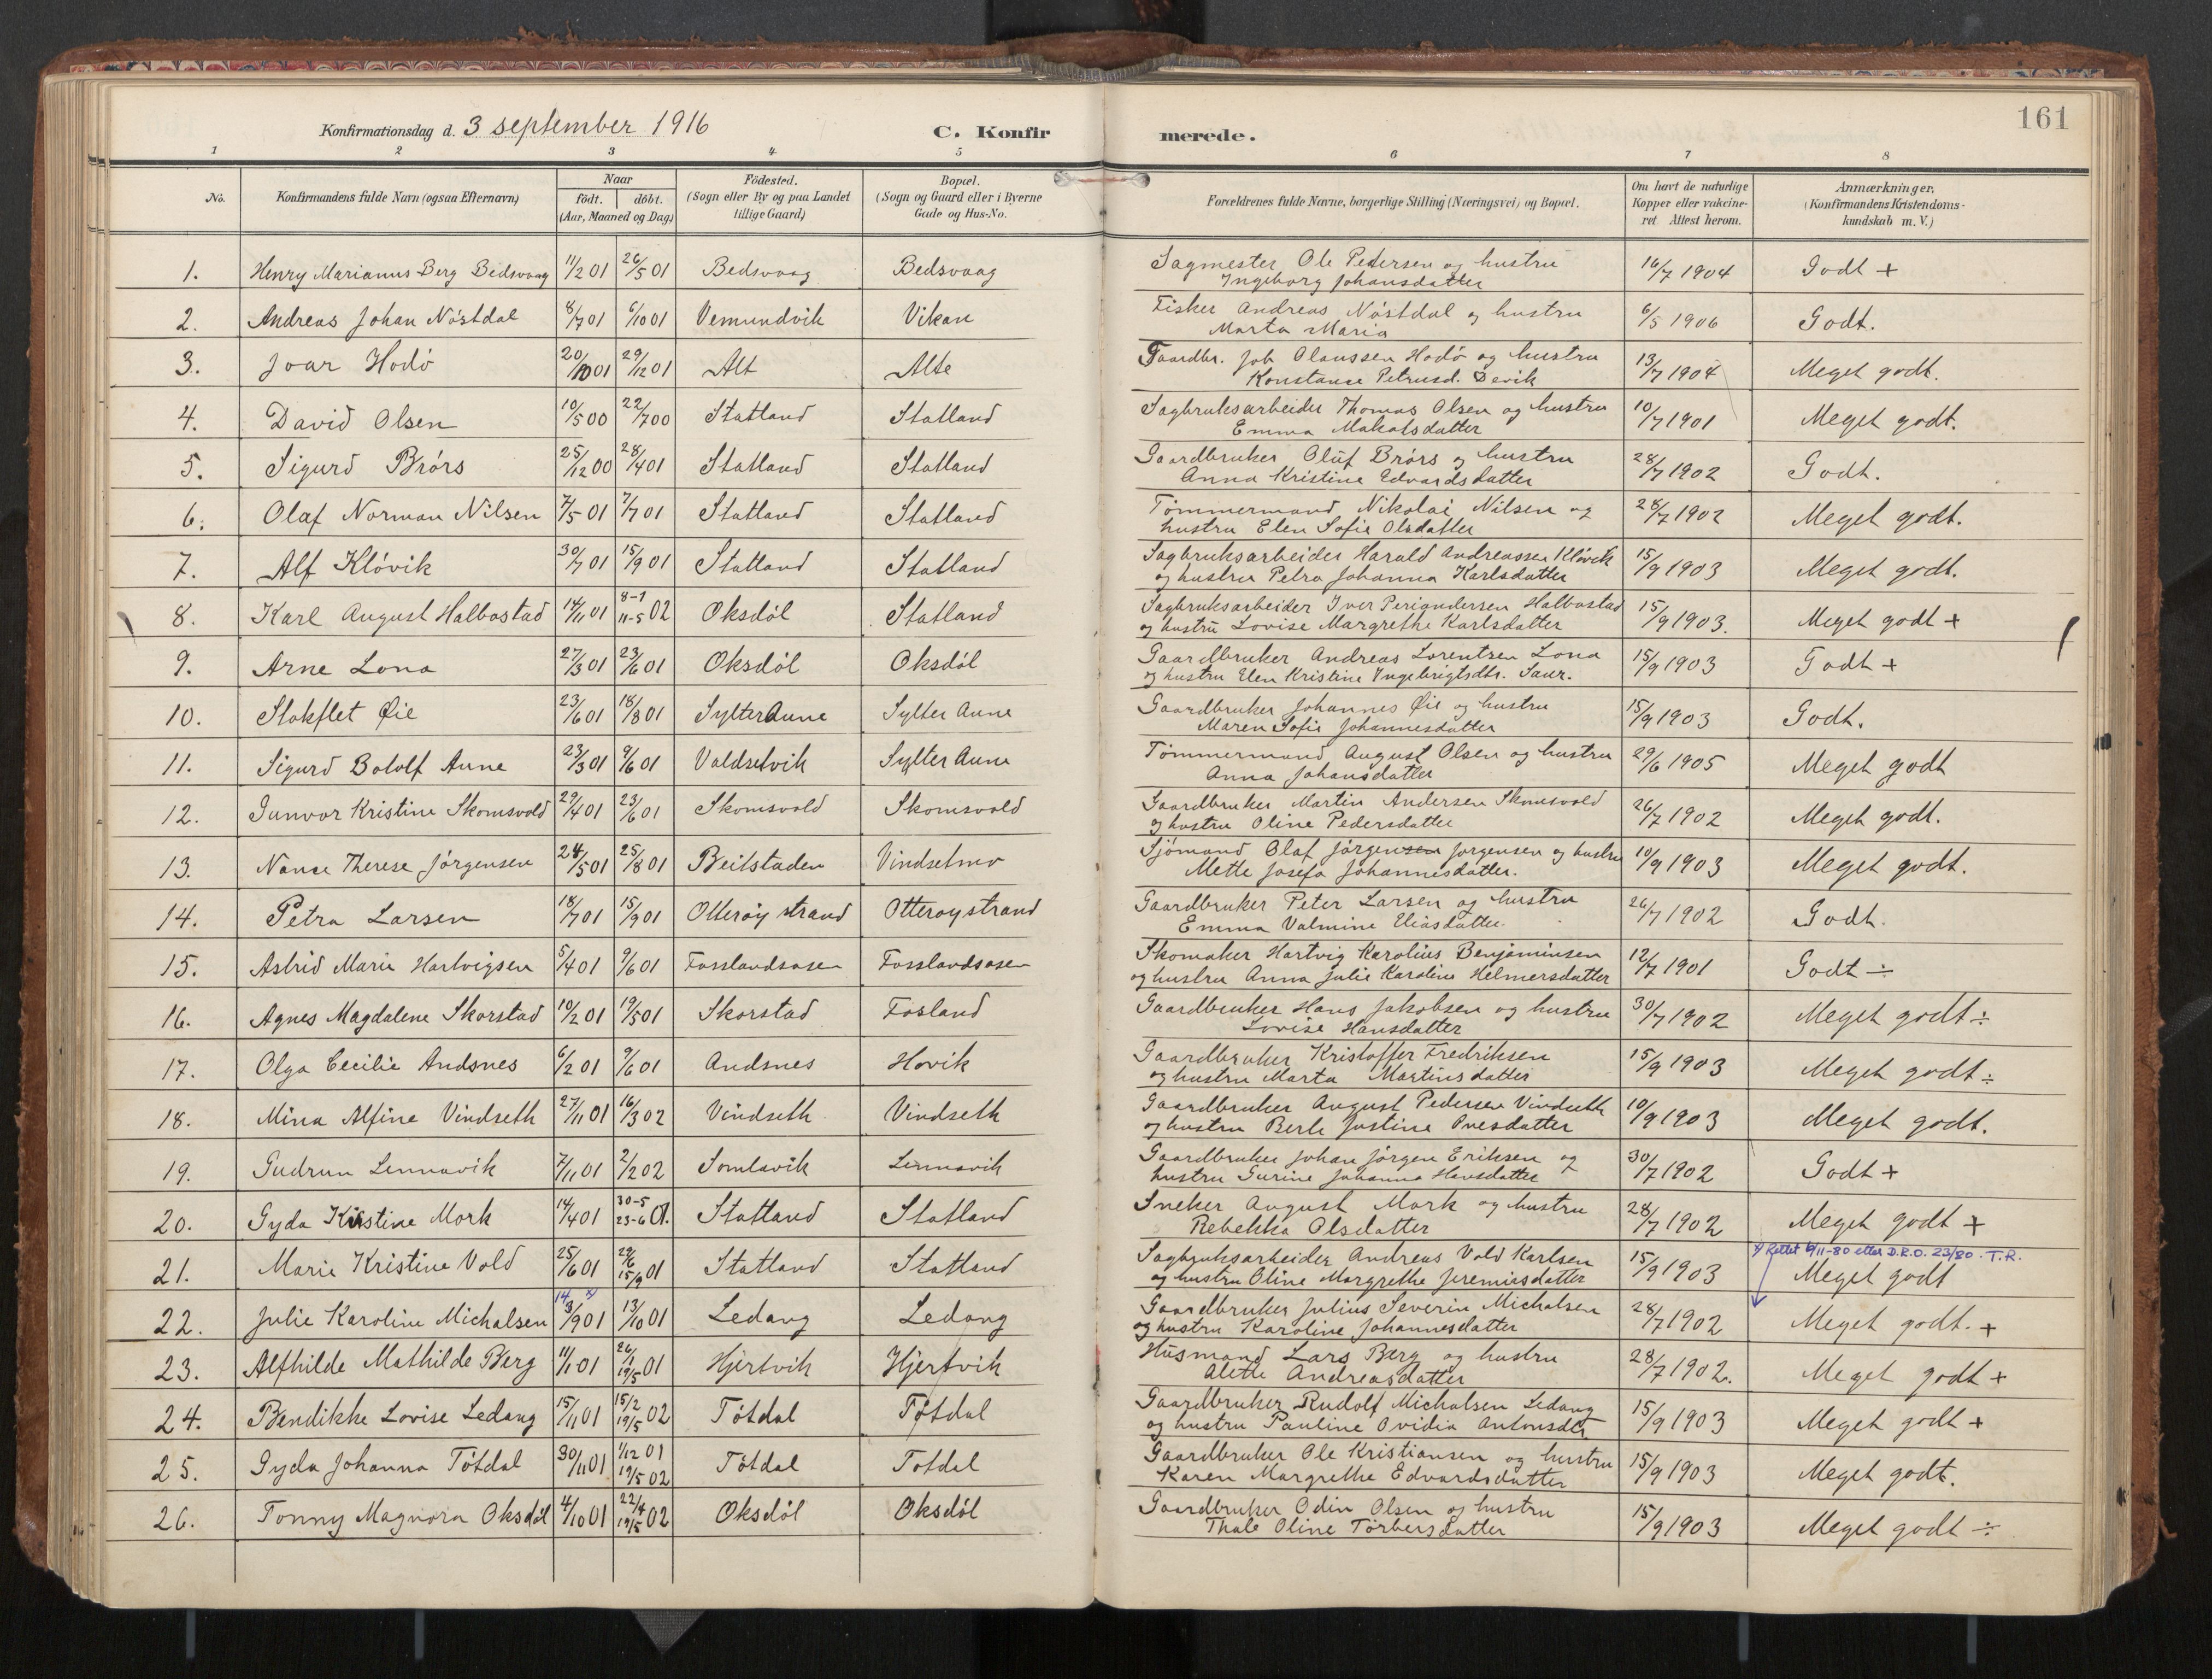 161
Konfirmationsdag d. 3 september 1916 C. Konfirmerede.
1 2 3 4 5 6 7 8
No. Konfirmandens fulde Navn (ogsaa Efternavn) Naar födt. döbt. (Aar, Maaned og Dag) Födested. (Sogn eller By og paa Landet tillige Gaard) Bopæl. (Sogn og Gaard eller i Byerne Gade og Hus-No. Forældrenes fulde Navne, borgerlige Stilling (Næringsvei) og Bopæl. Om havt de naturlige Kopper eller vakcineret Attest herom. Anmærkninger, (Konfirmandens Kristendomskundskab m. V.)
1. Henry Marianus Berg Bedsvaag 11/2 01 26/5 01 Bedsvaag Bedsvaag Sagmester Ole Pedersen og hustru
Ingeborg Johansdatter 16/7 1904 Godt +
2. Andreas Johan Nöstdal 8/7 01 6/10 01 Vemundvik Vikan Fisker Andreas Nöstdal og hustru
Marta Maria 6/5 1906 Godt.
3. Joar Hodö 20/10 01 29/12 01 Alt Alte Gaardbr. Joh Olaussen Hodö og hustru
Konstanse Petrusd. Devik 13/7 1904 Meget godt.
4. David Olsen 10/5 00 22/7 00 Statland Statland Sagbruksarbeider Thomas Olsen og hustru
Emma Makatsdatter 10/7 1901 Meget godt.
5. Sigurd Brörs 25/12 00 28/4 01 Statland Statland Gaardbruker Oluf Brörs og hustru
Anna Kristine Edvardsdatter 28/7 1902 Godt.
6. Olaf Norman Nilsen 7/5 01 7/7 01 Statland Statland Tömmermand Nikolai Nilsen og
hustru Elen Sofie Olsdatter 28/7 1902 Meget godt.
7. Alf Klövik 30/7 01 15/9 01 Statland Statland Sagbruksarbeider Harald Andreassen Klövik
og hustru Petra Johanna Karlsdatter 15/9 1903 Meget godt.
8. Karl August Halbostad 14/11 01 8-1 11-5 02 Oksdöl Statland Sagbruksarbeider Iver Periandersen Halbostad
og hustru Lovise Margrethe Karlsdatter 15/9 1903. Meget godt +
9. Arne Lona 27/3 01 23/6 01 Oksdöl Oksdöl Gaardbruker Andreas Lorentsen Lona
og hustru Elen Kristine Ingebrigtsdtr. Saur. 15/9 1903 Godt +
10. Stokflet Øie 23/6 01 18/8 01 Sylter Aune Sylter Aune Gaardbruker Johannes Øie og hustru
Maren Sofie Johannesdatter 15/9 1903 Godt.
11. Sigurd Botolf Aune 23/3 01 9/6 01 Valdsetvik Sylter Aune Tömmermand August Olsen og hustru
Anna Johansdatter 29/6 1905 Meget godt
12. Gunvor Kristine Skomsvold 29/4 01 23/6 01 Skomsvold Skomsvold Gaardbruker Martin Andersen Skomsvold
og hustru Oline Pedersdatter 26/7 1902 Meget godt.
13. Nanse Therese Jörgensen 24/5 01 25/8 01 Beitstaden Vindsetmo Sjömand Olaf Jörgensen Jorgensen og hustru
Mette Josefa Johannesdatter. 10/9 1903 Meget godt.
14. Petra Larsen 18/7 01 15/9 01 Otteröy strand Otteroystrand Gaardbruker Peter Larsen og hustru
Emma Valmine Eliasdatter. 26/7 1902 Godt.
15. Astrid Marie Hartvigsen 5/4 01 9/6 01 Fosslandsosen Fosslandsosen Skomaker Hartvig Karolius Benjaminsen
og hustru Anna Julie Karoline Helmersdatter 12/7 1901 Godt ÷
16. Agnes Magdalene Skorstad 10/2 01 19/5 01 Skorstad Fosland Gaardbruker Hans Jakobsen og hustru
Lovise Hansdatter 30/7 1902 Meget godt ÷
17. Olga Cecilie Andsnes 6/2 01 9/6 01 Andsnes Hovik Gaardbruker Kristoffer Fredriksen
og hustru Marta Martinsdatter 15/9 1903 Meget godt ÷
18. Mina Alfine Vindseth 27/11 01 16/3 02 Vindseth Vindseth Gaardbruker August Pedersen Vindseth
og hustru Berle Justine Ovesdatter 10/9 1903 Meget godt.
19. Gudrun Lennavik 7/11 01 2/2 02 Somlavik Lennavik Gaardbruker Johan Jörgen Eriksen og
hustru Gurine Johanna Hansdatter 30/7 1902 Godt +
20. Gyda Kristine Mork 14/4 01 30-5 23-6 01. Statland Statland Sneker August Mork og hustru
Rebekka Olsdatter 28/7 1902 Meget godt +
x) Rettet 6/11-80 etter D.R.O. 23/80. T.R.
21. Marie Kristine Vold 25/6 01 29/6 15/9 01 Statland Statland Sagbruksarbeider Andreas Vold Karlsen
og hustru Oline Margrethe Jeremiasdatter 15/9 1903 Meget godt
22. Julie Karoline Michalsen 14 x) 3/9 01 13/10 01 Ledang Ledang Gaardbruker Julius Severin Michalsen
og hustru Karoline Johannesdatter 28/7 1902 Meget godt. +
23. Alfhilde Mathilde Berg 11/1 01 26/1 19/5 01 Hjertvik Hjertvik Husmand Lars Berg og hustru
Alette Andreasdatter 28/7 1902. Meget godt +
24. Bendikke Lovise Ledang 15/11 01 15/2 19/5 02 Tötdal Tötdal Gaardbruker Rudolf Michalsen Ledang
og hustru Pauline Ovidia Antonsdtr 15/9 1903 Meget godt +
25. Gyda Johanna Tötdal 30/11 01 1/12 01 19/5 02 Tötdal Totdal Gaardbruker Ole Kristiansen og hustru
Karen Margrethe Edvardsdatter 15/9 1903 Meget godt.
26. Tonny Magnora Oksdöl 4/10 01 22/4 19/5 02 Oksdöl Oksdöl Gaardbruker Odin Olsen og hustru
Thale Oline Törbersdatter 15/9 1903 Meget godt ÷